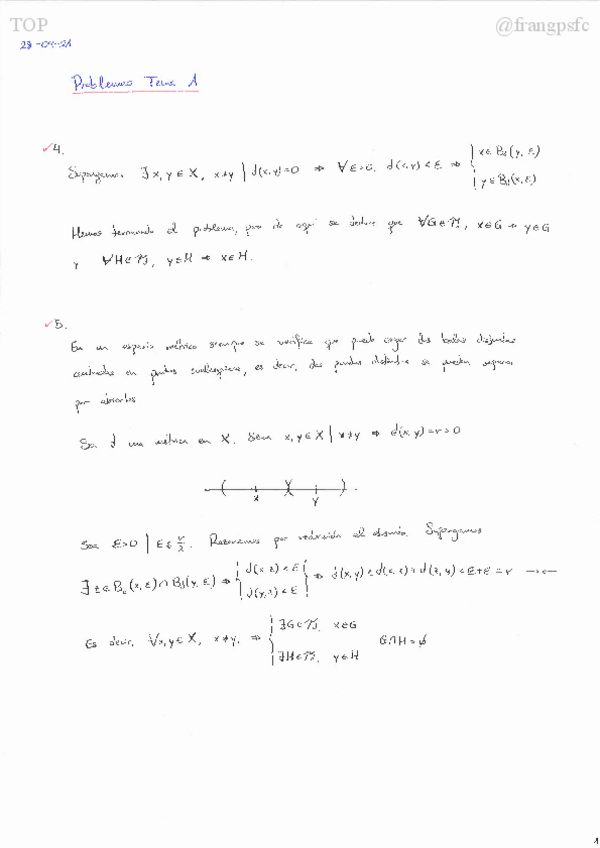 TOP
@frangpsfc
Problemas Tema 1
4.
Supongamos ∃ x, y ∈ X, x ≠ y | d(x, y) = 0 ⇒ ∀ε > 0, d(x, y) < ε ⇒ { x ∈ B_d(y, ε)
y ∈ B_d(x, ε)
Hemos terminado el problema, pues de aquí se deduce que ∀G ∈ 𝒯, x ∈ G ⇒ y ∈ G
y ∀H ∈ 𝒯, y ∈ H ⇒ x ∈ H.
5.
En un espacio métrico siempre se verifica que puedo coger dos bolas disjuntas
centradas en puntos cualesquiera, es decir, dos puntos distintos se pueden separar
por abiertos
Sea d una métrica en X. Sean x, y ∈ X | x ≠ y ⇒ d(x, y) = r > 0
x y
Sea ε > 0 | ε ≤ r/2. Razonamos por reducción al absurdo. Supongamos
∃ z ∈ B_d(x, ε) ∩ B_d(y, ε) ⇒ { d(x, z) < ε
d(y, z) < ε } ⇒ d(x, y) ≤ d(x, z) + d(z, y) < ε + ε = r →←
Es decir, ∀x, y ∈ X, x ≠ y, ⇒ { ∃G ∈ 𝒯, x ∈ G
∃H ∈ 𝒯, y ∈ H
G ∩ H = ∅
1